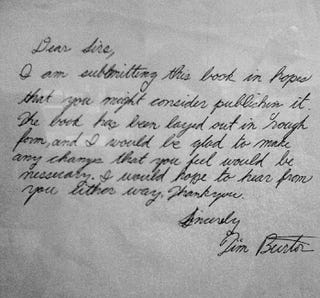 Dear Sirs,
I am submitting this book in hopes
that you might consider publishin it.
The book has been layed out in rough
form, and I would be glad to make
any changs that you feel would be
nessicary. I would hope to hear from
you either way. Thankyou.
Sincerely
Tim Burton